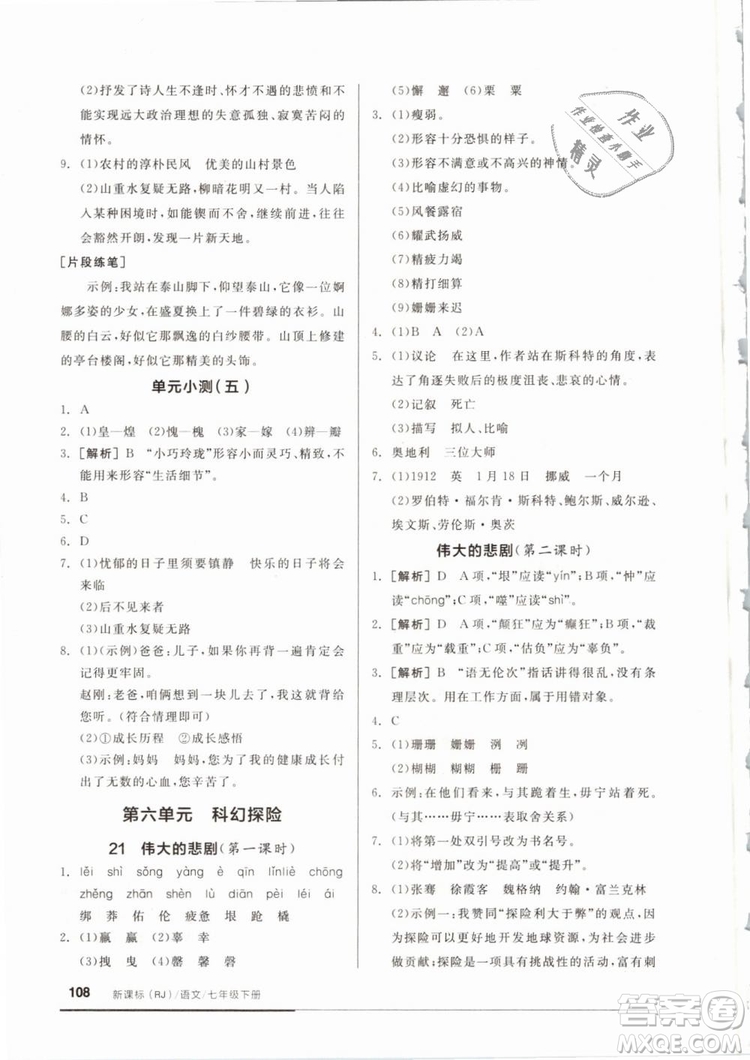 (2)抒发了诗人生不逢时、怀才不遇的悲愤和不
能实现远大政治理想的失意孤独、寂寞苦闷的
情怀。
9. (1)农村的淳朴民风　优美的山村景色
(2)山重水复疑无路,柳暗花明又一村。当人陷
入某种困境时,如能锲而不舍,继续前行,往往
会豁然开朗,发现一片新天地。
[片段练笔]
示例:我站在泰山脚下,仰望泰山,它像一位婀
娜多姿的少女,在盛夏换上了一件碧绿的衣衫。山
腰的白云,好似它那飘逸的白纱腰带。山顶上修建
的亭台楼阁,好似它那精美的头饰。
单元小测(五)
1. A
2. (1)皇—煌　(2)愧—槐　(3)家—嫁　(4)辨—瓣
3. [解析] B　“小巧玲珑”形容小而灵巧、精致,不
能用来形容“生活细节”。
4. B
5. C
6. D
7. (1)忧郁的日子里须要镇静　快乐的日子将会
来临
(2)后不见来者
(3)山重水复疑无路
8. (1)(示例)爸爸:儿子,背诵前先理解它,就会
记得更牢固。
赵刚:老爸,咱俩先谈谈心,让我先把几件事说给
您听。(符合情理即可)
(2)①成长历程　②成长感悟
(3)示例:妈妈　妈妈,您为了我的健康成长付
出了无数的心血,您辛苦了!
第六单元　科幻探险
21　伟大的悲剧(第一课时)
1. lěi　shì　sǒng　yàng　è　qīn　lǐnliè　chōng
zhěng　zhān　shàn　yùn　niè　pèi　léi　ái
绑　莽　佑　伦　疲惫　垠　跄　橇
2. (1)赢　赢　(2)辜　幸
(3)拽　曳　(4)罄　馨　磬
108　新课标(RJ)/语文/七年级下册
(5)懈　邂　(6)栗　粟
3. (1)瘦弱。
(2)形容十分恐惧的样子。
(3)形容不满意或不高兴的神情。
(4)比喻虚幻的事物。
(5)风餐露宿
(6)耀武扬威
(7)精疲力竭
(8)精打细算
(9)姗姗来迟
4. (1)B　A　(2)A
5. (1)议论　在这里,作者站在斯科特的角度,表
达了角逐失败后的极度沮丧、悲哀的心情。
(2)记叙　死亡
(3)描写　拟人、比喻
6. 奥地利　三位大师
7. (1)1912　英　1月18日　挪威　一个月
(2)罗伯特·福尔肯·斯科特、鲍尔斯、威尔逊、
埃文斯、劳伦斯·奥茨
伟大的悲剧(第二课时)
1. [解析] D　A项,“垠”应读“yín”;B项,“忡”应
读“chōng”;C项,“噬”应读“shì”。
2. [解析] D　A项,“颠狂”应为“癫狂”;B项,“裁
重”应为“载重”;C项,“估负”应为“辜负”。
3. [解析] B　“语无伦次”指话讲得很乱,没有条
理。用在工作方面,属于用错对象。
4. C
5. (1)珊珊　姗姗　洌　冽
(2)糊糊　蝴蝴　栅　跚
6. 示例:在他们看来,与其跪着生,毋宁站着死。
(与其……毋宁……表取舍关系)
7. (1)将第一处双引号改为书名号。
(2)将“增加”改为“提高”或“提升”。
8. (1)张骞　徐霞客　魏格纳　约翰·富兰克林
(2)示例一:我赞同“探险利大于弊”的观点,因
为探险可以更好地开发地球资源,更好地开发
宇宙空间。探险是一项具有挑战性的活动,有
作业
作业检查小助手
精灵
作业精灵
答案圈
MXQE.COM